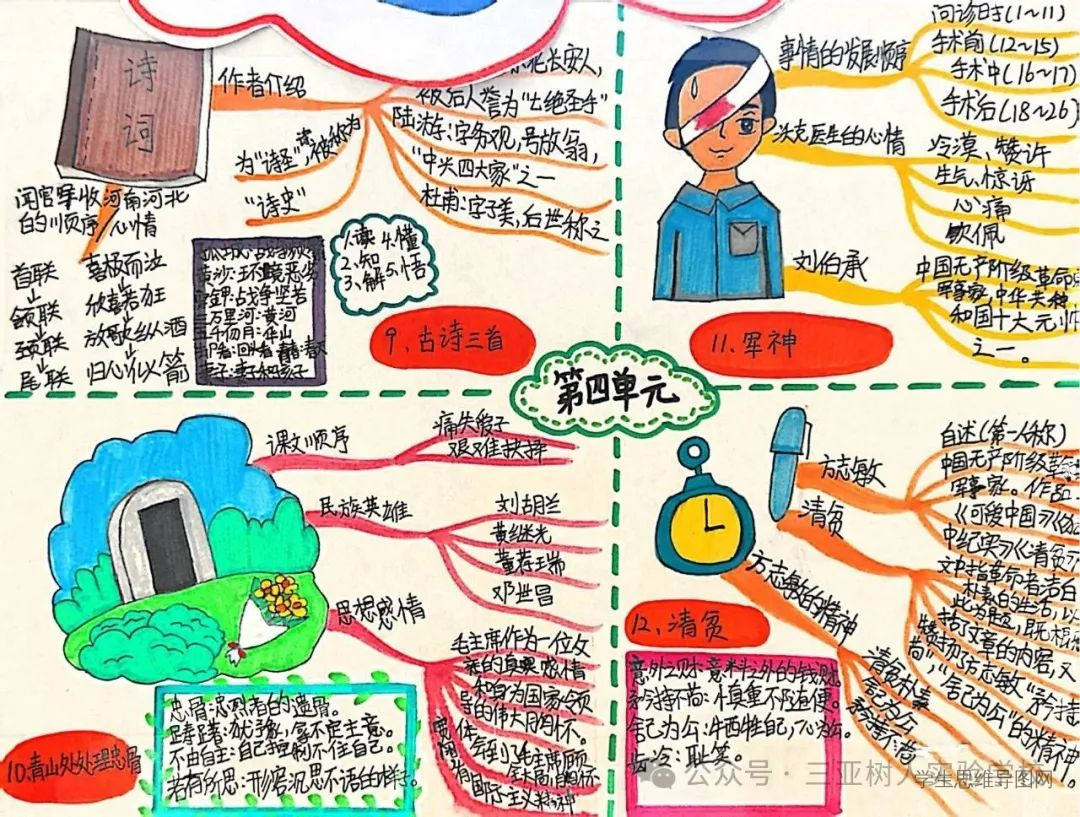 诗
词
作者介绍
长安人,
被后人誉为"七绝圣手"
陆游:字务观,号放翁,
"中兴四大家"之一
杜甫:字子美,后世称之
为"诗圣",被称为
"诗史"
闻官军收河南河北
的顺序/心情
首联 喜极而泣
颔联 欣喜若狂
颈联 放歌纵酒
尾联 归心似箭
万里河:黄河
1.读 4.懂
2.知
3.解 5.悟
9、古诗三首
问诊时(1~11)
事情的发展顺序
手术前(12~15)
手术中(16~17)
手术后(18~26)
沃克医生的心情
冷漠、赞许
生气、惊讶
心痛
钦佩
刘伯承
中国无产阶级革命
军事家,中华人民共
和国十大元帅
之一。
11、军神
第四单元
课文顺序
痛失爱子
艰难抉择
民族英雄
刘胡兰
黄继光
董存瑞
邓世昌
思想感情
毛主席作为一位父
亲的真实感情
和身为国家领
导的伟大胸怀。
体会到了毛主席顾
国际主义精神
忠骨:忠烈者的遗骨。
踌躇:犹豫,拿不定主意。
不由自主:自己控制不住自己。
若有所思:形容沉思不语的样子。
10.青山处处埋忠骨
方志敏
自述(第一人称)
中国无产阶级革命
军事家。作品:
《可爱中国》《
中纪实》《清贫》
清贫
文中指革命者洁白
朴素的生活,以
此为准则,既概
括了文章的内容,又
赞扬了方志敏"矜持不
苟","舍己为公"的精神
方志敏的精神
清贫朴素
舍己为公
矜持不苟
12、清贫
意外之财:意料之外的钱财
矜持不苟:慎重不随便。
舍己为公:牺牲自己,为公。
齿冷:耻笑。
公众号·三亚树人实验学校
学生思维导图网